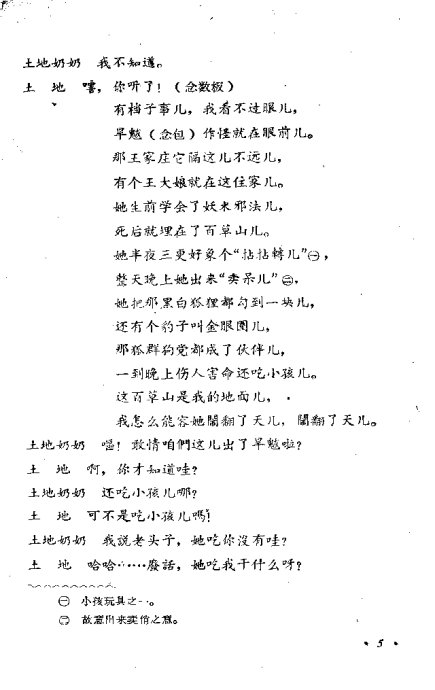 土地奶奶　我不知道。
土　地　嘻，你听了！（念数板）
有档子事儿，我看不过眼儿，
旱魃（念包）作怪就在眼前儿。
那王家庄它隔这儿不远儿，
有个王大娘就在这住家儿。
她生前学会了妖术邪法儿，
死后就埋在了百草山儿。
她半夜三更好象个“拈拈轉儿”㊀，
整天晚上她出来“卖呆儿”㊁，
她把那黑白狐狸都勾到一块儿，
还有个豹子叫金眼圈儿，
那狐群狗党都成了伙伴儿，
一到晚上伤人害命还吃小孩儿。
这百草山是我的地面儿，
我怎么能容她鬧翻了天儿，鬧翻了天儿。
土地奶奶　噁！敢情咱們这儿出了旱魃啦？
土　地　啊，你才知道哇？
土地奶奶　还吃小孩儿哪？
土　地　可不是吃小孩儿嗎！
土地奶奶　我説老头子，她吃你沒有哇？
土　地　哈哈……廢話，她吃我干什么呀？
㊀　小孩玩具之一。
㊁　故意出来卖俏之意。
· 5 ·